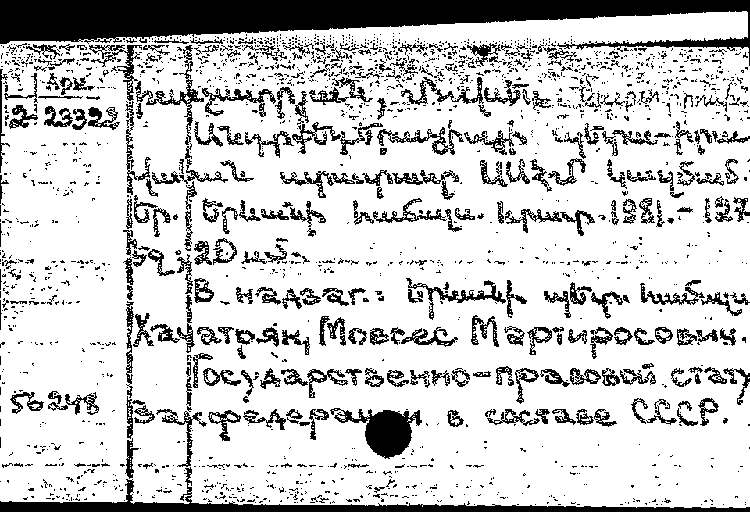 Арм.
2-23322
Խաչատրյան, Մովսես
Անդրֆեդերացիայի պետա-իրա-
վական ստատուսը ՍՍՀՄ կազմում.
Եր. Երևանի համալս. հրատ. 1981.- 127
էջ; 20 սմ.
В надзаг.: Երևանի պետ. համալս
Хачатрян, Мовсес Мартиросович.
Государственно-правовой стату
Закфедерации в составе СССР.
56248